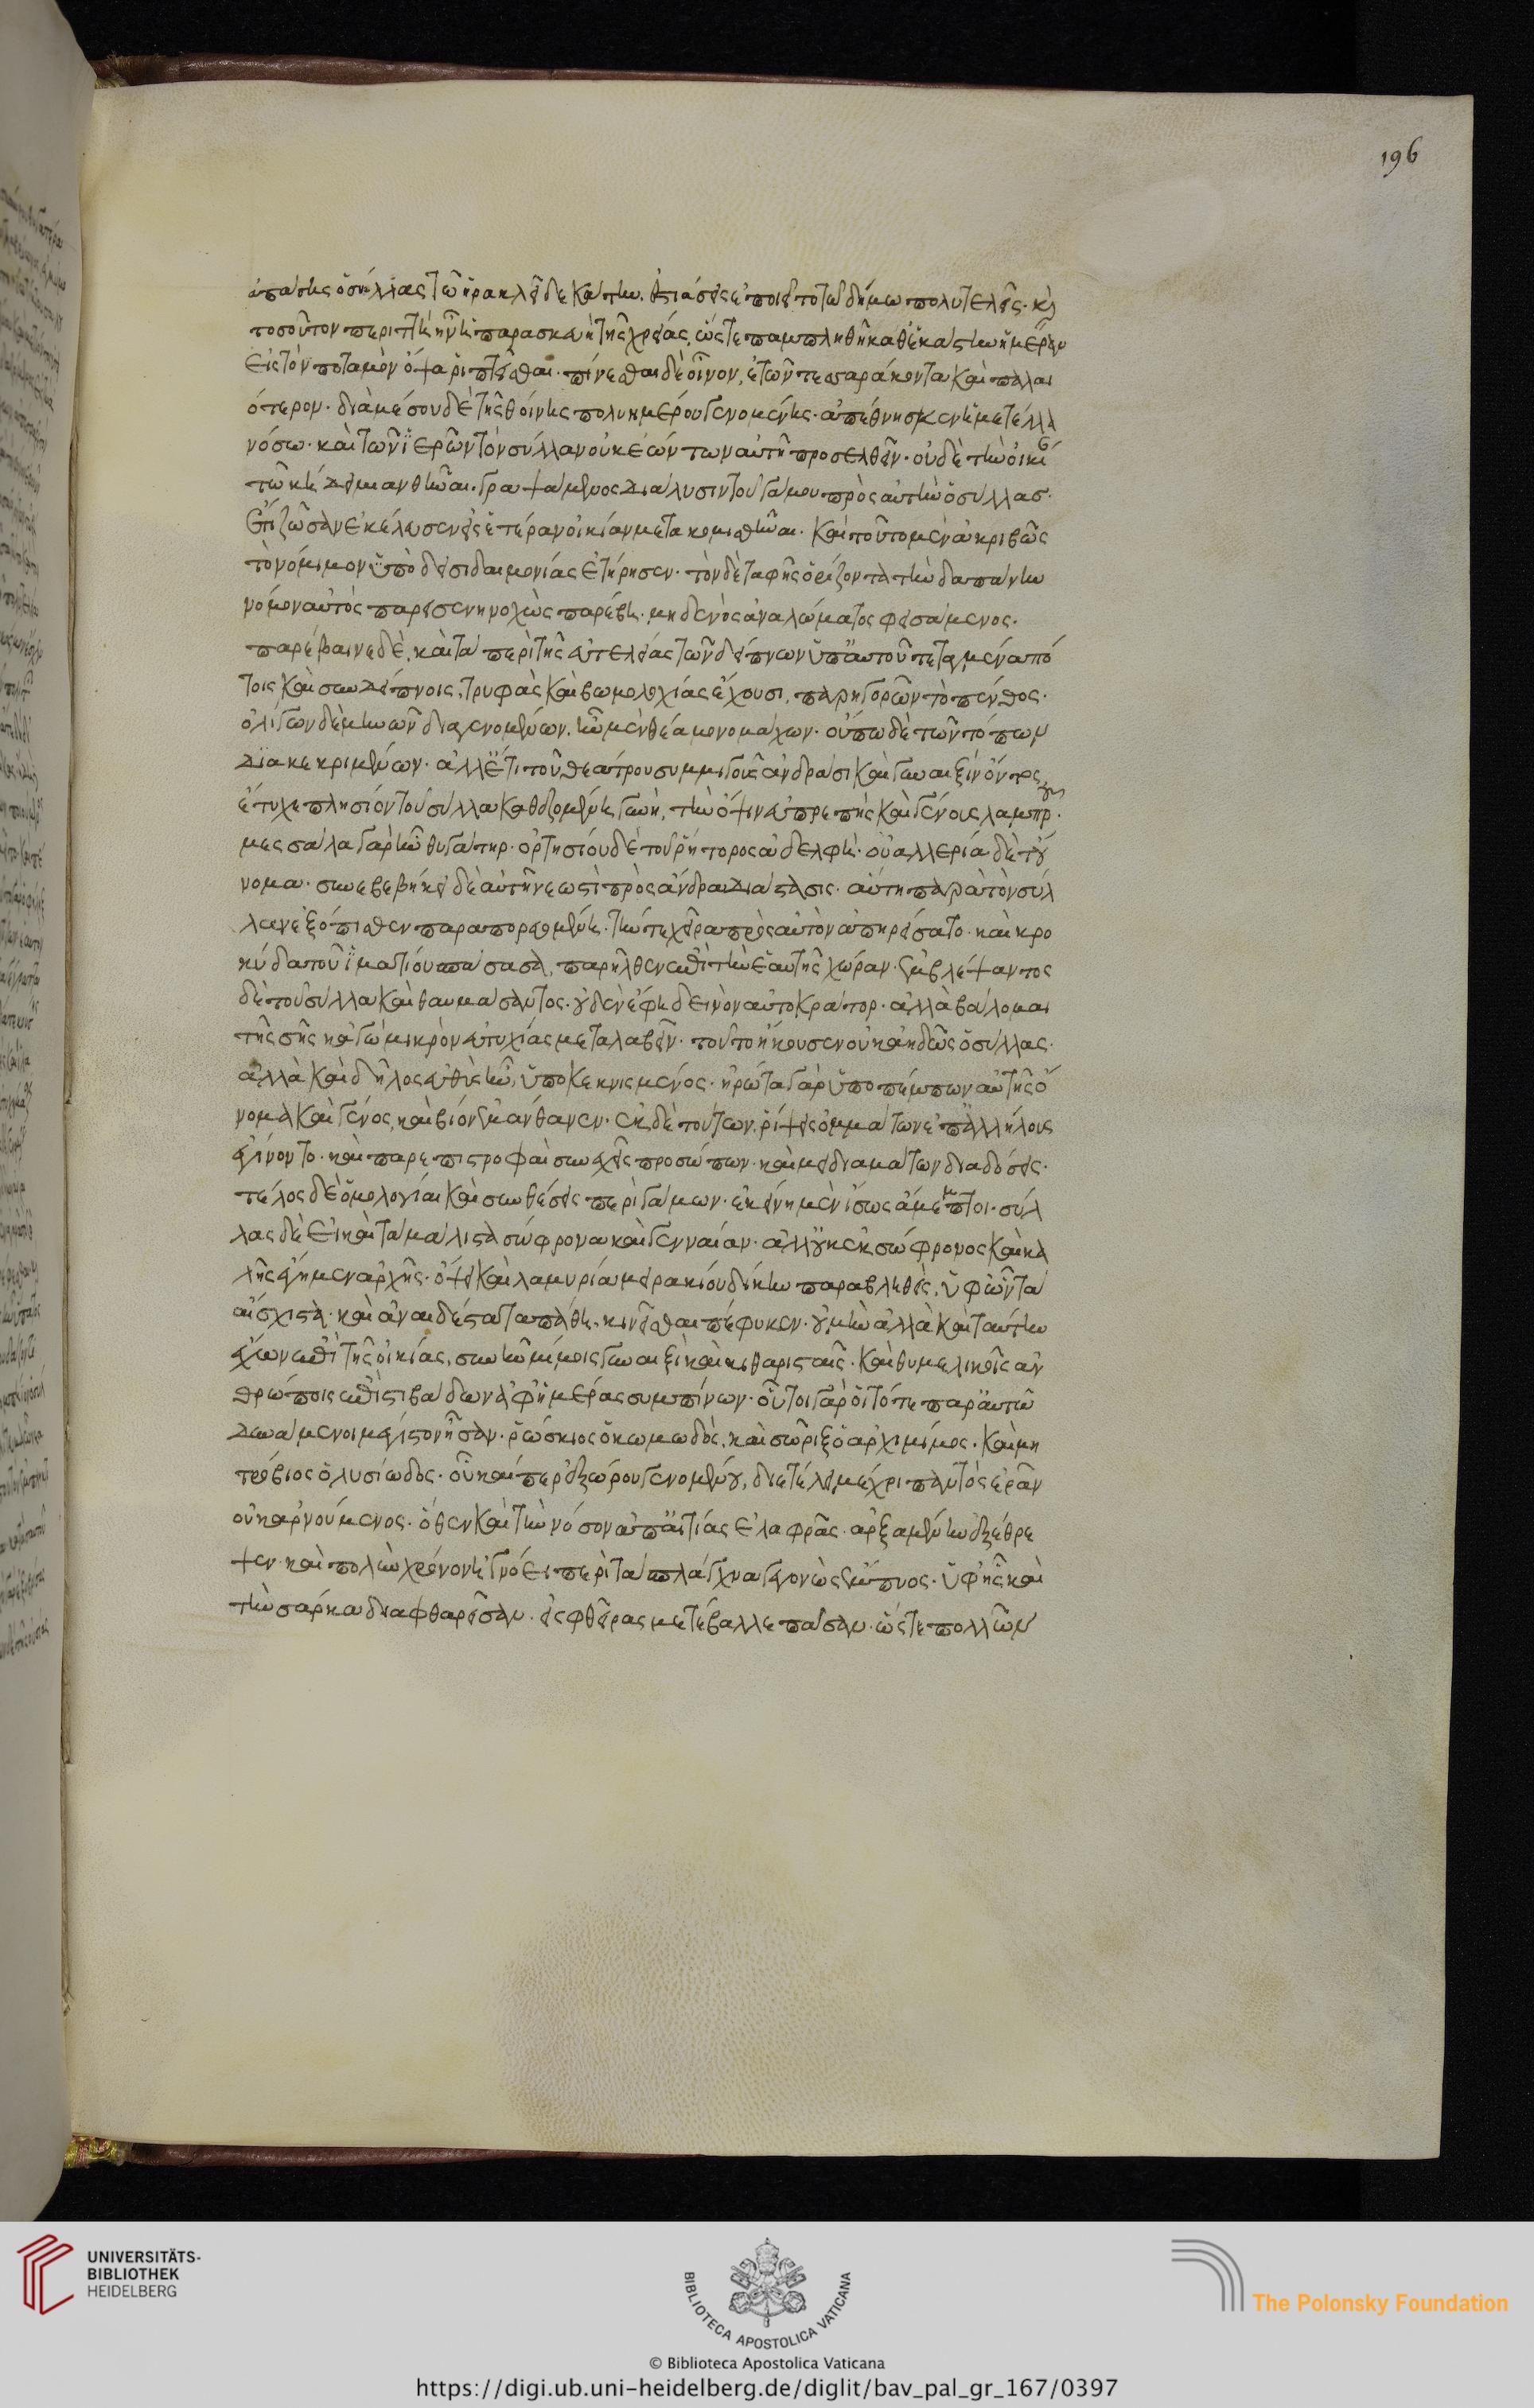 ἁπάσης ὁ σύλλας τῶ ἡρακλεῖ δεκάτην. ἑστιάσεις ἐποιεῖτο τῶ δήμω πολυτελεῖς· καὶ
τοσοῦτον περιττὴ ἦν ἡ παρασκευὴ τῆς χρείας, ὥστε παμπληθῆ καθ' ἑκάστην ἡμέραν
εἰς τὸν ποταμὸν ὄψα ῥιπτεῖσθαι· πίνεσθαι δὲ οἶνον, ἐτῶν τεσσαράκοντα καὶ παλαι
ότερον· διὰ μέσου δὲ τῆς θοίνης πολυημέρου γενομένης· ἀπέθνησκεν ἡ μετέλλα
νόσω· καὶ τῶν ἱερῶν τὸν σύλλαν οὐκ ἐώντων αὐτῆ προσελθεῖν· οὐδὲ τὴν οἰκί
τῶ κήδει μιανθῆναι. γραψάμενος διάλυσιν τοῦ γάμου πρὸς αὐτὴν ὁ σύλλας·
ἔτι ζῶσαν ἐκέλευσεν εἰς ἑτέραν οἰκίαν μετακομισθῆναι. καὶ τοῦτο μὲν ἀκριβῶς
τὸ νόμιμον ὑπὸ δεισιδαιμονίας ἐτήρησεν· τὸν δὲ ταφῆς ὁρίζοντα τὴν δαπάνην
νόμον αὐτὸς παρεισενηνοχὼς παρέβη· μηδενὸς ἀναλώματος φεισάμενος·
παρέβαινε δὲ, καὶ τὰ περὶ τῆς εὐτελείας τῶν δείπνων ὑπ' αὐτοῦ τεταγμένα πό
τοις καὶ συνδείπνοις, τρυφὰς καὶ βωμολοχίας ἔχουσι, παρηγορῶν τὸ πένθος·
ὀλίγων δὲ μηνῶν διαγενομένων. ἦν μὲν θέα μονομάχων· οὔπω δὲ τῶν τόπων
διακεκριμένων· ἀλλ' ἔτι τοῦ θεάτρου συμμιγοῦς ἀνδράσι καὶ γυναιξὶν ὄντος
ἔτυχε πλησίον τοῦ σύλλα καθεζομένη γυνὴ, τὴν ὄψιν εὐπρεπὴς καὶ γένους λαμπροῦ·
μεσσάλα γὰρ ἦν θυγάτηρ· ὁρτησίου δὲ τοῦ ῥήτορος ἀδελφή· οὐαλλερία δὲ τοὔ
νομα· συνεβεβήκει δὲ αὐτῆ νεωστὶ πρὸς ἄνδρα διάστασις· αὕτη παρὰ τὸν σύλ
λαν ἐξόπισθεν παραπορευομένη. τήν τε χεῖρα πρὸς αὐτὸν ἀπηρείσατο· καὶ κρο
κύδα τοῦ ἱματίου σπάσασα, παρῆλθεν ἐπὶ τὴν ἑαυτῆς χώραν· ἐμβλέψαντος
δὲ τοῦ σύλλα καὶ θαυμάσαντος· οὐδὲν ἔφη δεινὸν αὐτόκρατορ· ἀλλὰ βούλομαι
τῆς σῆς κἀγὼ μικρὸν εὐτυχίας μεταλαβεῖν· τοῦτο ἤκουσεν οὐκ ἀηδῶς ὁ σύλλας·
ἀλλὰ καὶ δῆλος εὐθὺς ἦν, ὑποκεκνισμένος· ἠρώτα γὰρ ὑποπέμπων αὐτῆς ὄ
νομα καὶ γένος, καὶ βίον ἐμάνθανεν· ἐκ δὲ τούτων, ῥίψεις ὀμμάτων ἐπ' ἀλλήλους
ἐγίνοντο· καὶ παρεπιστροφαὶ συνεχεῖς προσώπων· καὶ μειδιαμάτων διαδόσεις·
τέλος δὲ ὁμολογίαι καὶ συνθέσεις περὶ γάμων· ἐκείνη μὲν ἴσως ἄμεμπτοι· σύλ
λας δὲ εἰ καὶ τὰ μάλιστα σώφρονα καὶ γενναίαν· ἀλλ' οὐκ ἐκ σώφρονος καὶ κα
λῆς ἔγημεν ἀρχῆς· ὄψει καὶ λαμυρία μειρακίου δίκην παραβληθείς, ὑφ' ὧν τὰ
αἴσχιστα· καὶ ἀναιδέστατα πάθη, κινεῖσθαι πέφυκεν· οὐ μὴν ἀλλὰ καὶ ταύτην
ἔχων ἐπὶ τῆς οἰκίας, συνῆν μίμοις γυναιξὶ καὶ κιθαρισταῖς· καὶ θυμελικοῖς ἀν
θρώποις ἐπὶ στιβάδων ἀφ' ἡμέρας συμπίνων· οὗτοι γὰρ οἱ τότε παρ' αὐτῶ
δυνάμενοι μέγιστον ἦσαν· ῥώσκιος ὁ κωμωδὸς, καὶ σῶριξ ὁ ἀρχιμίμος· καὶ μη
τρόβιος ὁ λυσιωδος· οὗ καίπερ ἐξώρου γενομένου, διετέλει μέχρι παντὸς ἐρᾶν
οὐκ ἀρνούμενος· ὅθεν καὶ τὴν νόσον ἀπ' αἰτίας ἐλαφρᾶς· ἀρξαμένην ἐξέθρε
ψεν· καὶ πολὺν χρόνον ἠγνόει περὶ τὰ σπλάγχνα γεγονὼς ἔμπυος· ὑφ' ἧς καὶ
τὴν σάρκα διαφθαρεῖσαν· εἰς φθεῖρας μετέβαλλε πᾶσαν· ὥστε πολλῶν
196
UNIVERSITÄTS-
BIBLIOTHEK
HEIDELBERG
BIBLIOTECA APOSTOLICA VATICANA
The Polonsky Foundation
© Biblioteca Apostolica Vaticana
https://digi.ub.uni-heidelberg.de/diglit/bav_pal_gr_167/0397